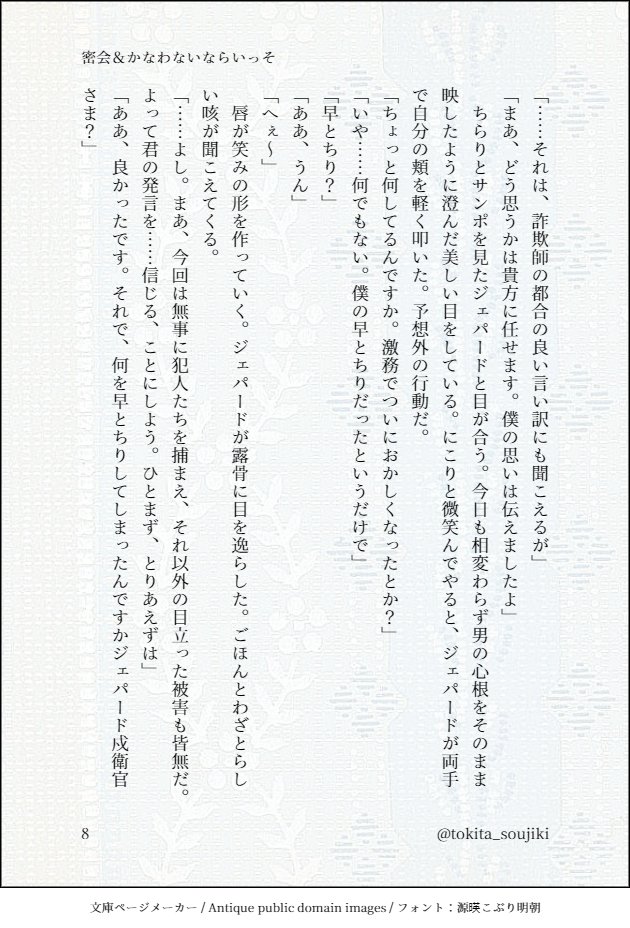 密会＆かなわないならいっそ
「……それは、詐欺師の都合の良い言い訳にも聞こえるが」
「まあ、どう思うかは貴方に任せます。僕の思いは伝えましたよ」
ちらりとサンポを見たジェパードと目が合う。今日も相変わらず男の心根をそのまま
映したように澄んだ美しい目をしている。にこりと微笑んでやると、ジェパードが両手
で自分の頬を軽く叩いた。予想外の行動だ。
「ちょっと何してるんですか。激務でついにおかしくなったとか？」
「いや……何でもない。僕の早とちりだったというだけで」
「早とちり？」
「ああ、うん」
「へぇ〜」
唇が笑みの形を作っていく。ジェパードが露骨に目を逸らした。ごほんとわざとらし
い咳が聞こえてくる。
「……よし。まあ、今回は無事に犯人たちを捕まえ、それ以外の目立った被害も皆無だ。
よって君の発言を……信じる、ことにしよう。ひとまず、とりあえずは」
「ああ、良かったです。それで、何を早とちりしてしまったんですかジェパード戍衛官
さま？」
8
@tokita_soujiki
文庫ページメーカー / Antique public domain images / フォント：源暎こぶり明朝